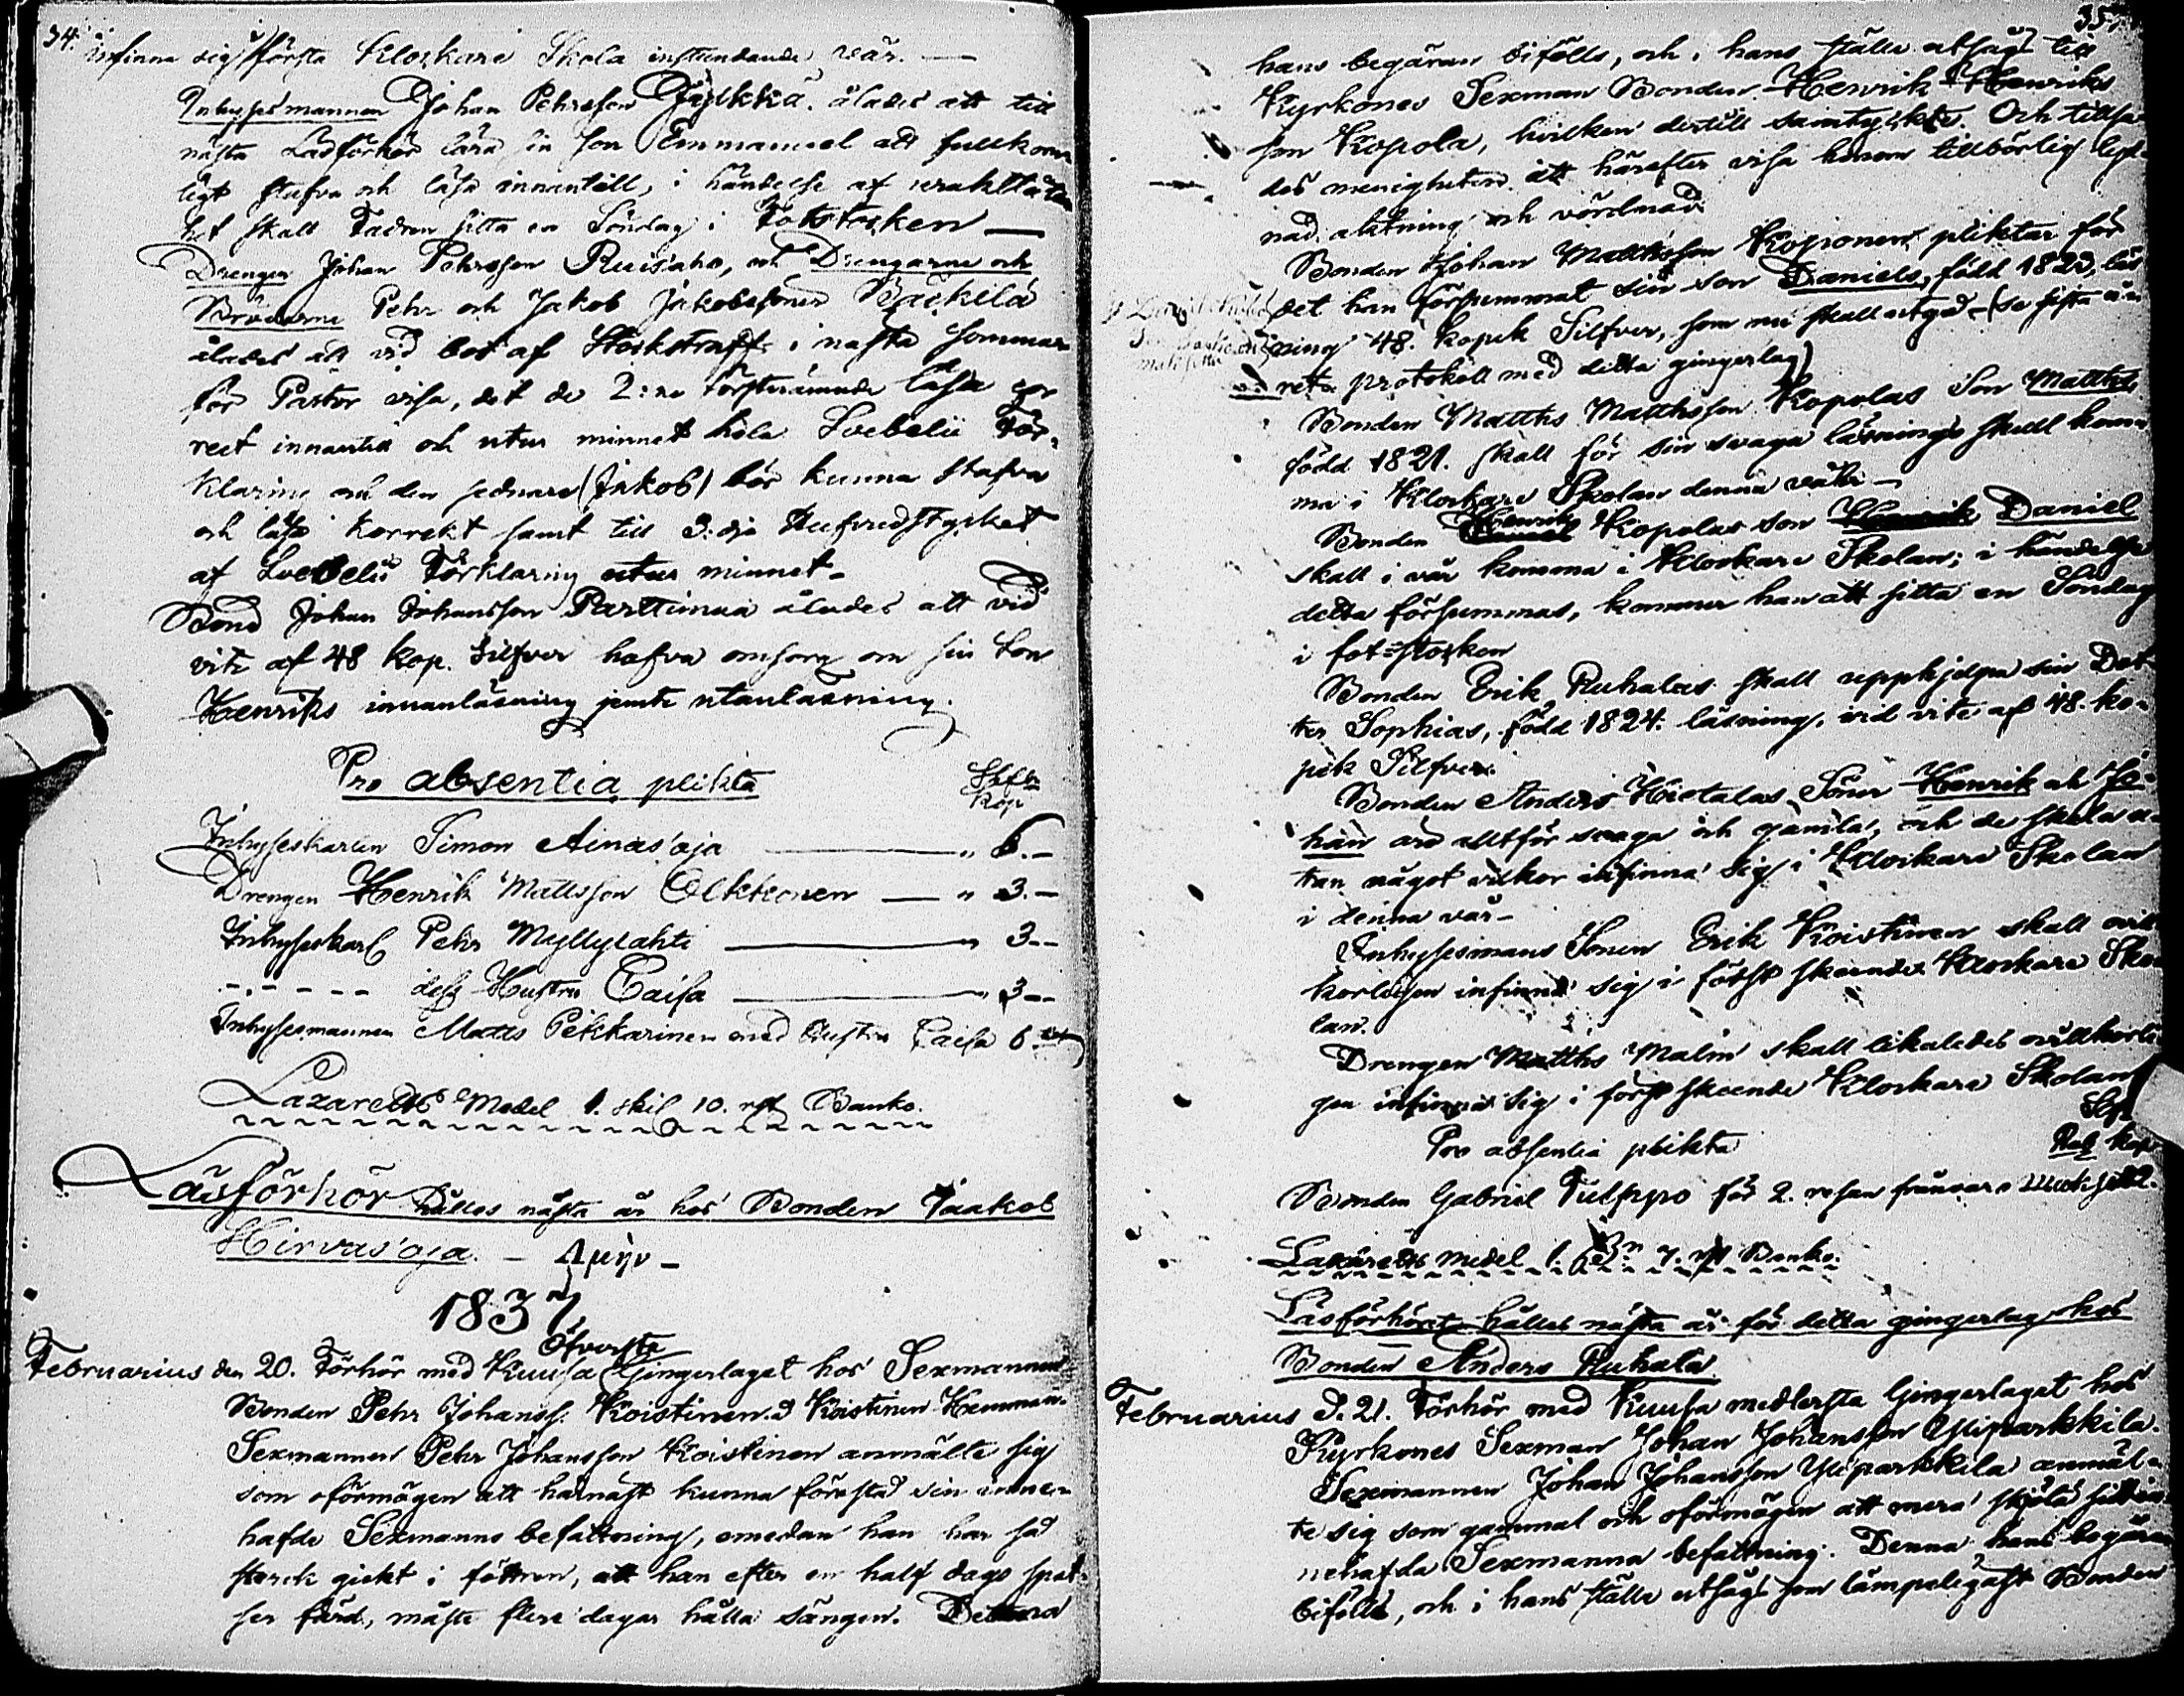 34.
infinna sig i första Klockare Skola instundande vår. —
Inhysesmannen Johan Pehrsson Jylkkä. ålades att till
nästa Läsförhör lära sin son Emmanuel att fullkom
ligt stafva och läsa innantill, i händelse af uraktlåten
het skall Fadren sitta en Söndag i Fotstocken —
Drengen Johan Pehrsson Ruis'aho, och Drengarne och
Bröderne Pehr och Jakob Jakobssöner Bäckilä
ålades att vid bot af Stockstraff i nästa Sommar
för Pastor visa, det de 2:ne förstnämnde läsa cor
rect innantill och utur minnet hela Svebelii För-
klaring och den sednare (Jakob) bör kunna stafva
och läsa korrekt samt till 3:dje Hufvudstycket
af Svebelii Förklaring utur minnet –
Bond Johan Johansson Parttimaa ålades att vid
vite af 48 kop. Silfver hafva omsorg om sin Son
Henriks innanläsning jemte utanläsning.
Pro absentia plikta
Silfv
kop
Inhyseskarlen Simon Ainas'oja — " 6.–
Drengen Henrik Mattsson Olkkonen — " 3.–
Inhyseskarl Pehr Myllylahti — " 3--
- - - - - - dess Hustru Caisa — " 3--
Inhysesmannen Matts Pekkarinen med Hustru Caisa 6
Lazaretts Medel 1. skil 10. rst Banko.
Läsförhör hålles nästa år hos Bonden Jaakob
Hirvas'oja. – Αμήν –
1837
Öfversta
Februarius den 20. Förhör med Kuusa Gingerlaget hos Sexmannen
Bonden Pehr Johanss. Koistinen å Koistinen Hemman.
Sexmannen Pehr Johansson Koistinen anmälte sig
som oförmögen att härnäst kunna förestå sin inne-
hafde Sexmanns befattning, emedan han har så
sterck gickt i föttren, att han efter en half dags spat-
ser färd, måste flere dagar hålla sängen.
35.
hans begäran bifölls, och i hans ställe utsågs till
Kyrkones Sexman Bonden Henrik Henriks
son Kopola, hvilken dertill samtyckte. Och tillsa
des menigheten att härefter visa honom tillbörlig lyd-
nad, aktning och vördnad.
Bonden Johan Matthsson Koponen pliktar för
det han försummat sin son Daniels, född 1820, läs
ning 48. kopek Silfver, som nu skall utgå – (se sista å
ret protokoll med detta gingerlag)
Bonden Matths Matthsson Kopolas Son Matths
född 1821. skall för sin svaga läsning skull kom-
ma i Klockare Skolan denna vår –
Bonden Henrik Kopolas son Daniel
skall i vår komma i Klockare Skolan; i händelse
detta försummas, kommer han att sitta en Söndag
i fot-stocken
Bonden Erik Ruhalas skall upphjelpa sin Dot
ter Sophias, född 1824. läsning, vid vite af 48. ko-
pek Silfver.
Bonden Anders Hietalas Söner Henrik och Jo-
han äro alltför svaga och gamla, och de skola u-
tan något vilkor infinna sig i Klockare Skolan
i denna vår –
Inhysesmans Sonen Erik Koistinen skall ovil
korligen infinna sig i först skeende Klockare Sko
lan.
Drengen Matths Malin skall likaledes ovillkorli
gen infinna sig i först skeende Klockare Skolan
Silf
Pro absentia plikta
Rub kop
Bonden Gabriel Tulppo för 2. resan frånvaro
Lazaretts medel 1. 7. rst Banko.
Läsförhöret hålles nästa år för detta gingerlag hos
Bonden Anders Ruhala.
Februarius d. 21. Förhör med Kuusa medlersta Gingerlaget hos
Kyrkones Sexman Johan Johansson Yliparkkila.
Sexmannen Johan Johansson Yliparkkila anmäl-
te sig som gammal och oförmögen att mera sköta sitt in
nehafda Sexmanna befattning. Denna hans begäran
bifölls, och i hans ställe utsågs som lämpeligast Bonden